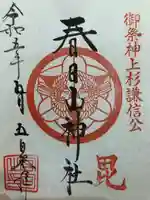 御祭神上杉謙信公
春日山神社
毘
令和五年五月五日